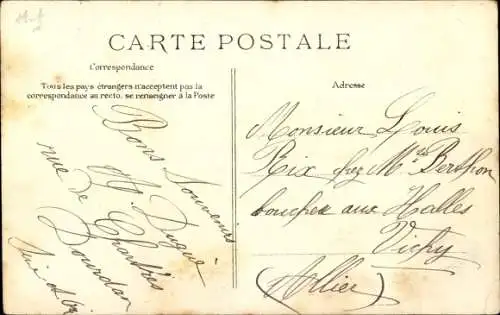 CARTE POSTALE
Correspondance
Tous les pays étrangers n'acceptent pas la
correspondance au recto, se renseigner à la Poste
Bons Souvenirs
H. Dugué
rue de Chartres
Dourdan
Adresse
Monsieur Louis
Rix chez Mr Berthon
boucher aux Halles
Vichy
(Allier)